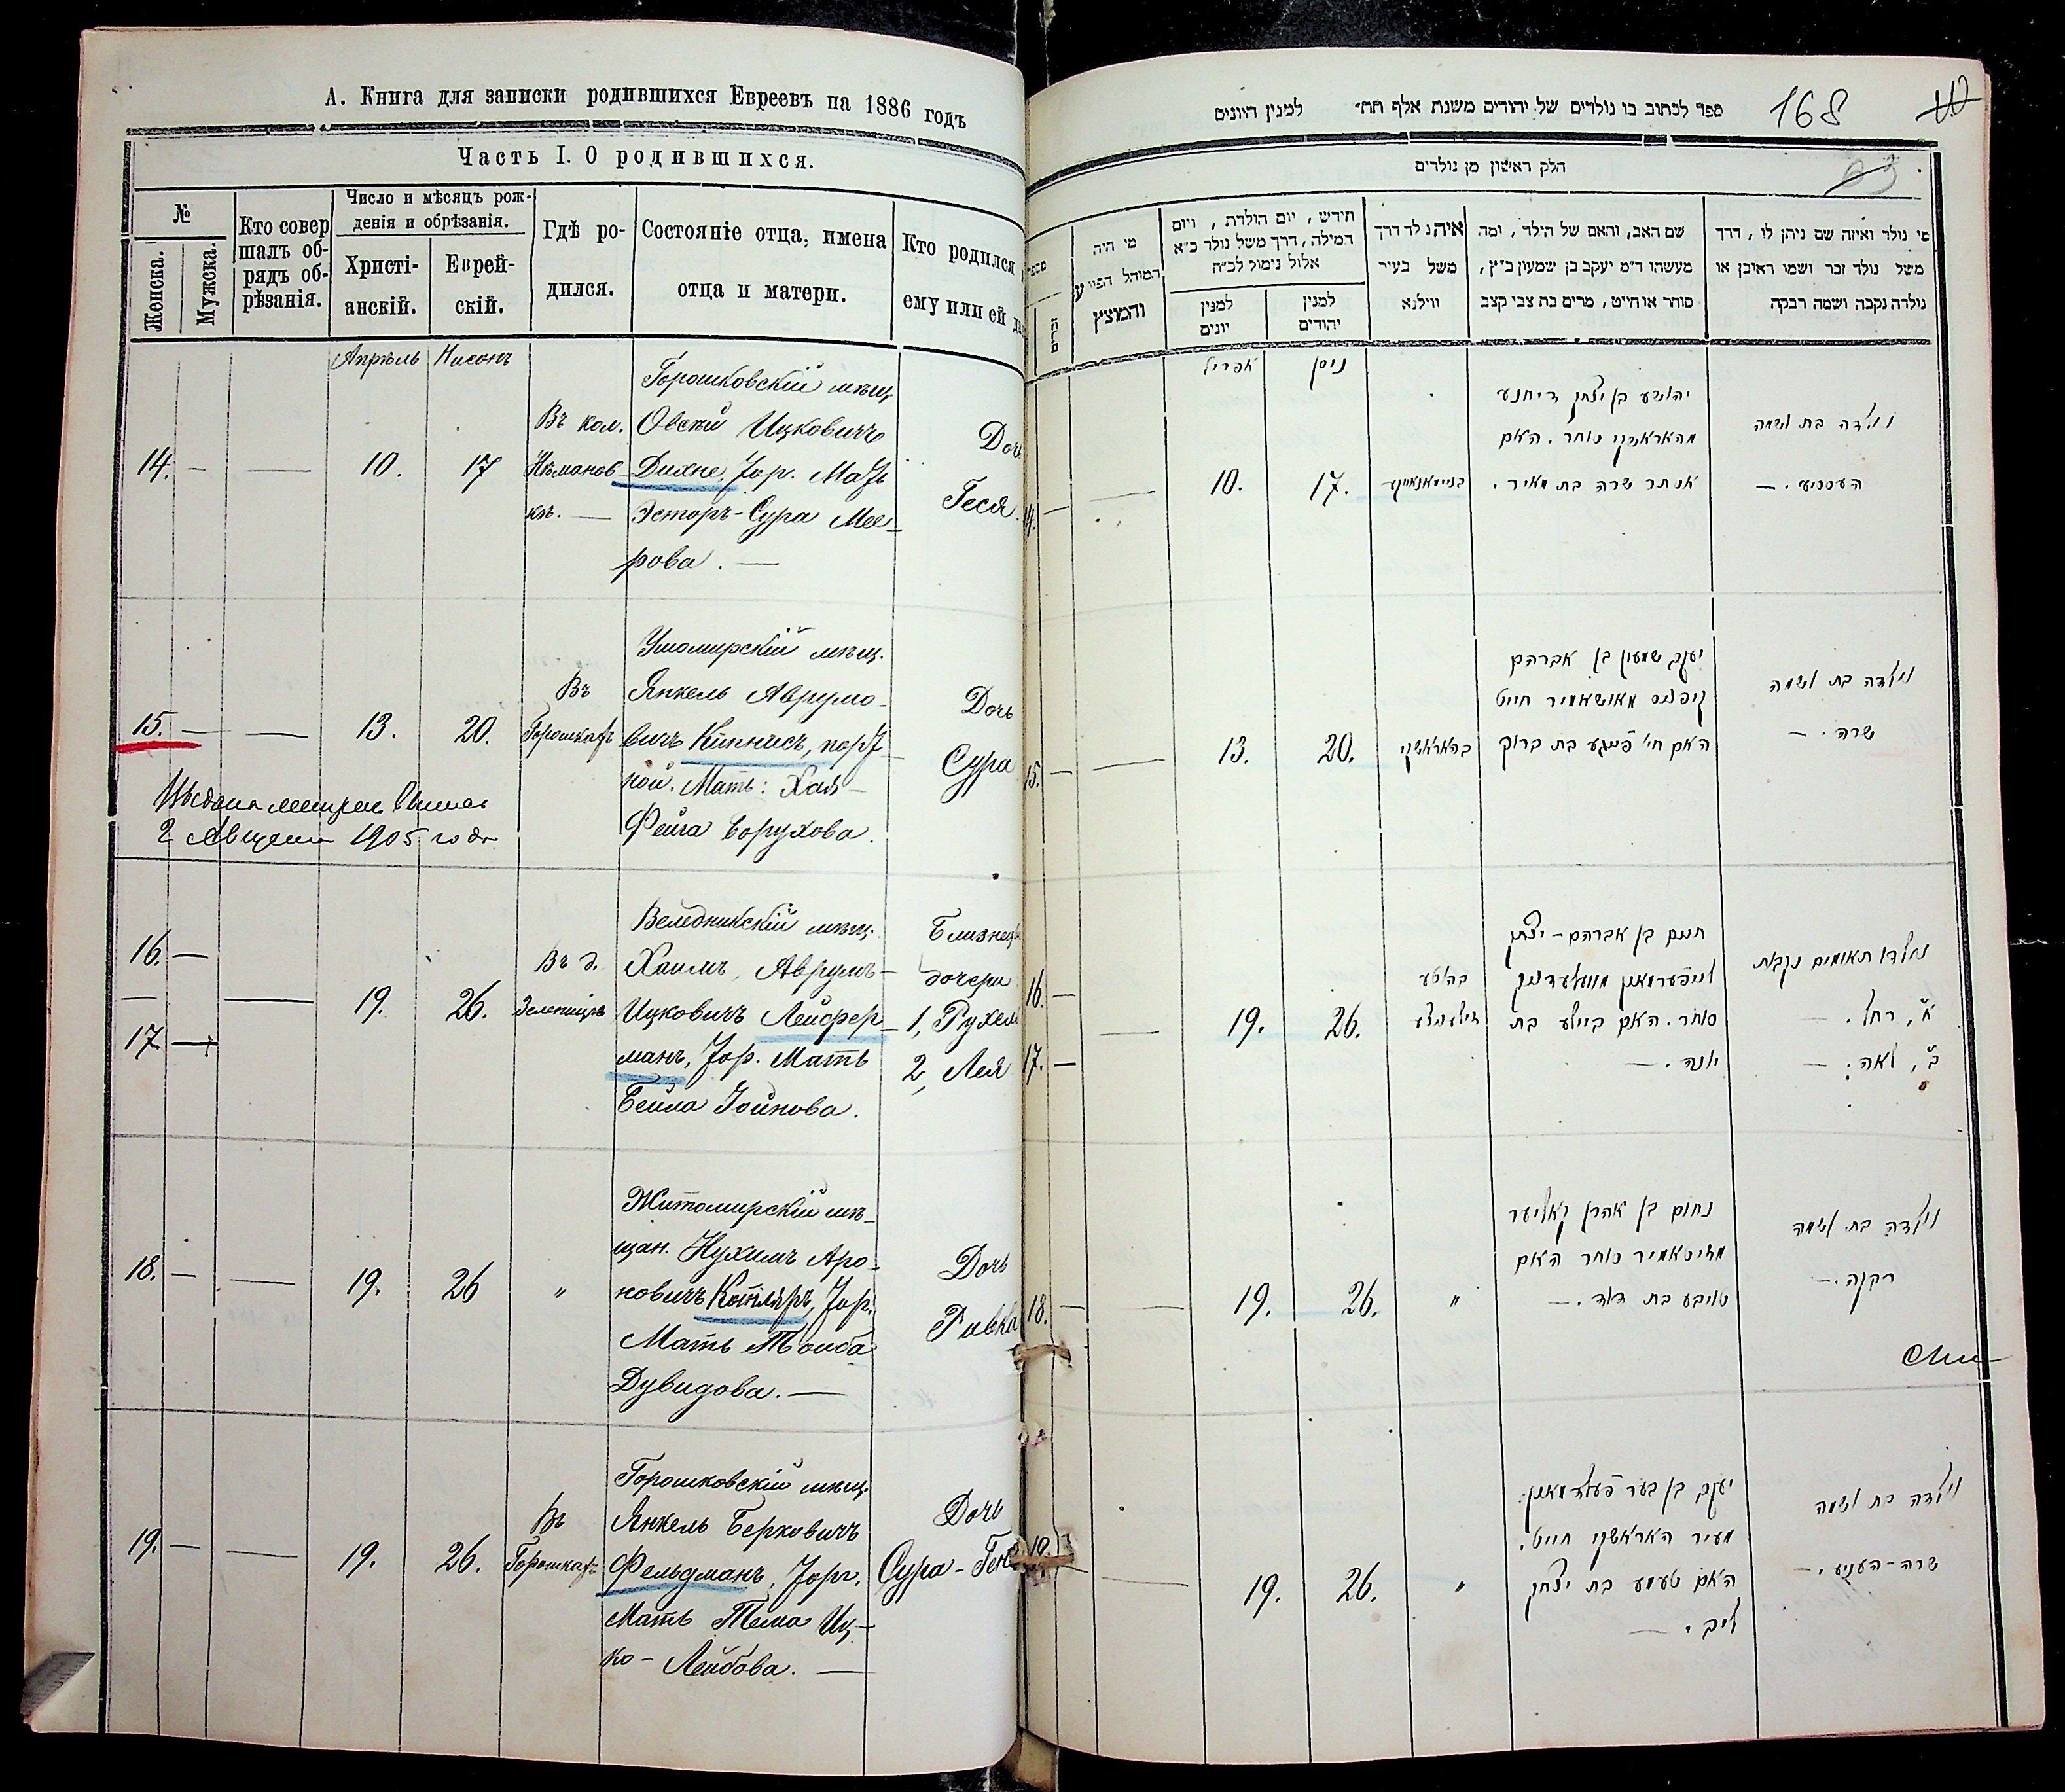 А. Книга для записки родившихся Евреевъ на 1886 годъ
Часть I. О родившихся.
№
Женска.
Мужска.
Кто совер
шалъ об-
рядъ об-
рѣзанія.
Число и мѣсяцъ рож-
денія и обрѣзанія.
Христі-
анскій.
Еврей-
скій.
Гдѣ ро-
дился.
Состояніе отца, имена
отца и матери.
Кто родился
ему или ей
Апрѣль Нисонъ
14. — — 10. 17
Въ кол.
Нѣманов
кѣ. —
Горошковскій мѣщ.
Овсѣй Ицковичъ
Дихне, Тор. Мать
Эстеръ-Сура Мее-
рова. —
Дочь
Геся.
15. — — 13. 20.
Въ
Горошкахъ
Ушомирскій мѣщ.
Янкель Аврумо-
вичъ Кипнисъ, порт-
ной. Мать: Хая-
Фейга Борухова.
Дочь
Сура
2 Августа 1905 года
16. —
17. —
— 19. 26.
Въ д.
Зеленицѣ
Веледникскій мѣщ.
Хаимъ, Аврумъ-
Ицковичъ Лейфер-
манъ, Тор. Мать
Бейла Іойнова.
Близнецы
дочери
1, Рухель
2, Лея
18. — — 19. 26 "
Житомирскій мѣ-
щан. Нухимъ Аро-
новичъ Котляръ, Тор.
Мать Тоиба
Дувидова. —
Дочь
Ривка
19. — — 19. 26.
Въ
Горошкахъ
Горошковскій мѣщ.
Янкель Берковичъ
Фельдманъ, Торг.
Мать Тема Иц-
ко-Лейбова. —
Дочь
Сура-Геня
168
ספר לכתוב בו נולדים של יהודים משנת אלף תת״ למנין היונים
חלק ראשון מן נולדים
מי נולד ואיזה שם ניתן לו, דרך
משל נולד זכר ושמו ראובן או
נולדה נקבה ושמה רבקה
שם האב, והאם של הילד, ומה
מעשהו ד״מ יעקב בן שמעון כ״ץ,
סוחר או חייט, מרים בת צבי קצב
איה נלד דרך
משל בעיר
ווילנא
חידש, יום הולדת, ויום
המילה, דרך משל נולד כ״א
אלול נימול לכ״ח
למנין
יהודים
למנין
יונים
מי היה
המוהל הפריע
והמוצץ
ניסן אפריל
נולדה בת ושמה
העסיע. —
יהושע בן יצחק דיחנע
מהאראשקי סוחר. האם
אסתר שרה בת מאיר.
17. 10. — — 14.
נולדה בת ושמה
שרה. —
יעקב שמעון בן אברהם
קיפניס מאושאמיר חייט
האם חי׳ פייגע בת ברוך
בהאראשקי
20. 13. — — 15.
נולדו תאומים נקבות
א׳, רחל. —
ב׳, לאה. —
חיים בן אברהם-יצחק
לייפערמאן מוועלעדניק
סוחר. האם ביילע בת
יונה. —
26. 19. — 16. — 17. —
נולדה בת ושמה
רבקה. —
נחום בן אהרן קאטליער
מזיטאמיר סוחר האם
טויבע בת דוד. —
" 26. 19. — — 18.
נולדה בת ושמה
שרה-העניע. —
יעקב בן בער פעלדמאן.
מעיר האראשקי חייט.
האם טעמע בת יצחק
ליב. —
" 26. 19. — — 19.